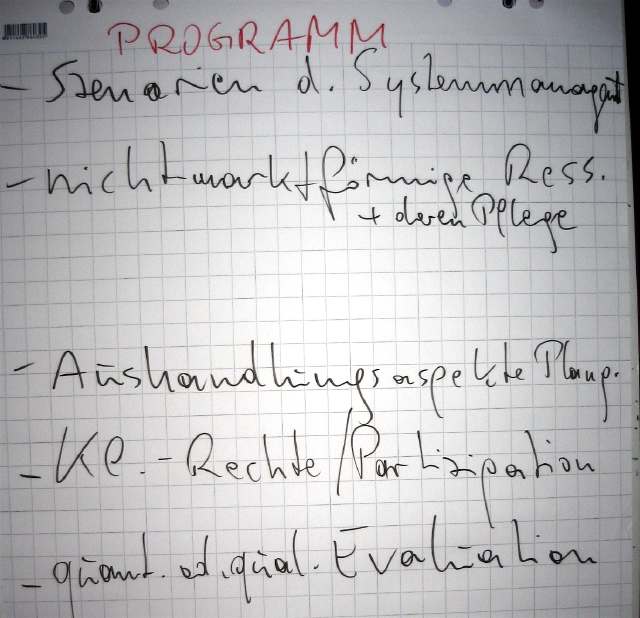 PROGRAMM
- Szenarien d. Systemmanagmt
- nichtmarktförmige Ress.
+ deren Pflege
- Aushandlungsaspekte Planp.
- Kl.-Rechte/Partizipation
- quant. od. qual. Evaluation